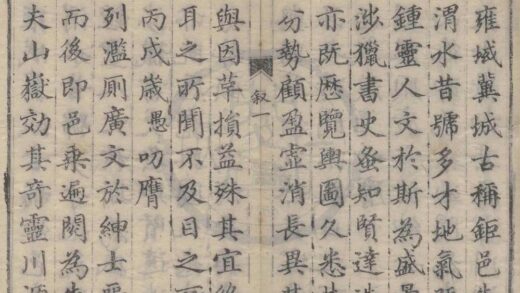 雍域冀城古稱鉅邑
渭水昔號多才地氣
鍾靈人文於斯為盛
涉獵書史蚤知賢達
亦既歷覽輿圖久悉
分勢顧盈虛消長異其
叙一
與因革損益殊其宜
耳之所聞不及目之
丙戌歲愚叨膺
列濫厠廣文於紳士
而後即邑乘遍閱為
夫山嶽効其奇靈川